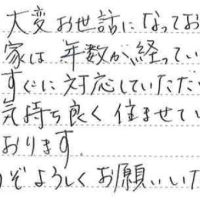 大変お世話になってお
家は年数が経ってい
すぐに対応していただ
気持ち良く住ませてい
おります。
うぞよろしくお願いいた